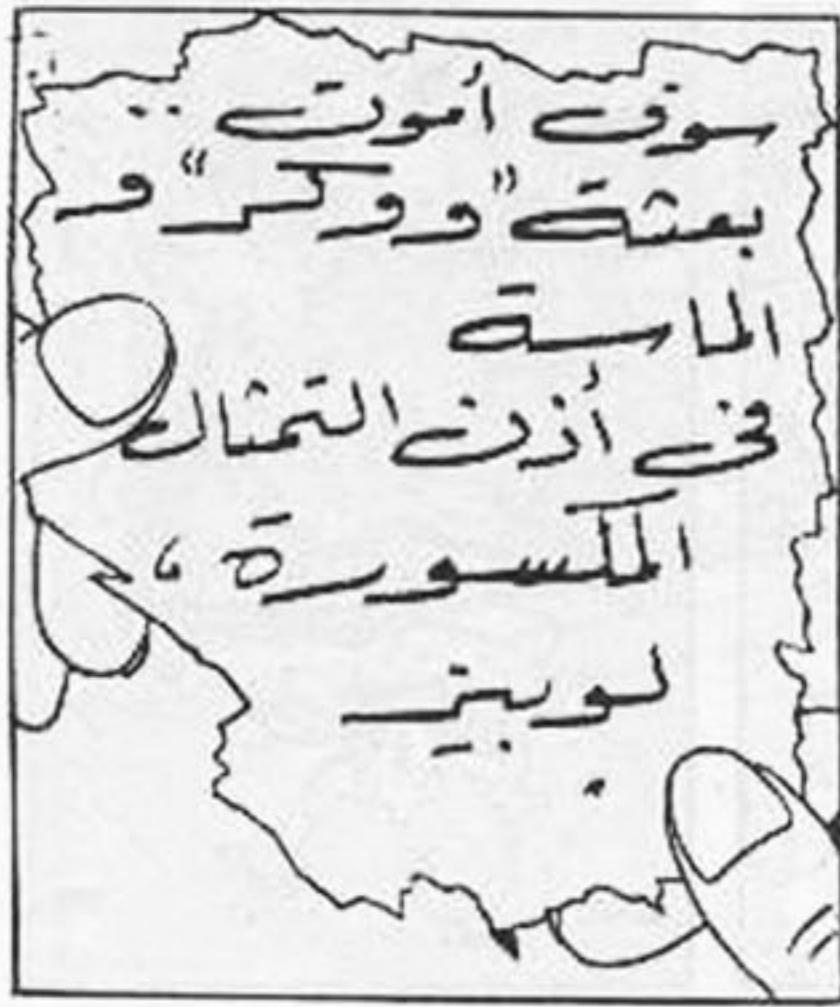 سوف أموت ..
بعثة "ووكر" و
الماسة
فى أذن التمثال
المكسورة ،
لوبيز